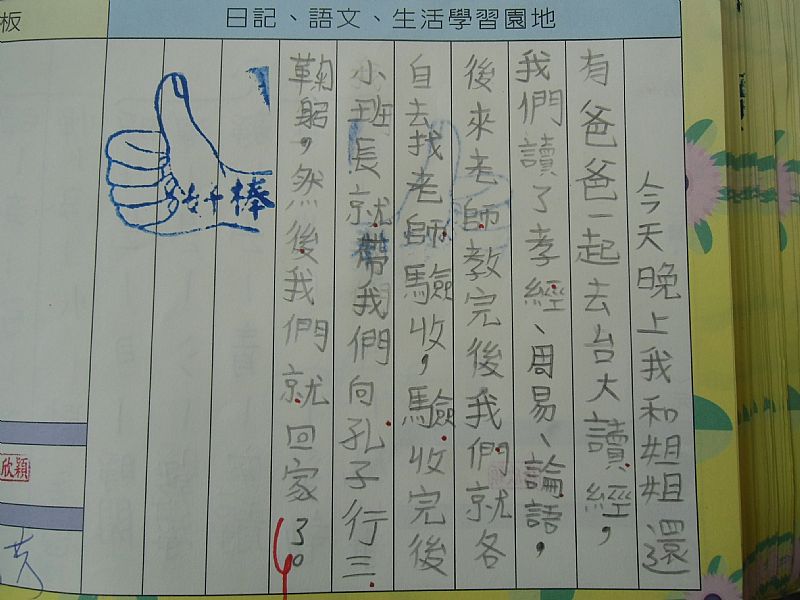 板
日記、語文、生活學習園地
今天晚上我和姐姐還
有爸爸一起去台大讀經,
我們讀了孝經、周易、論語,
後來老師教完後,我們就各
自去找老師驗收,驗收完後
小班長就帶我們向孔子行三
鞠躬,然後我們就回家了。
好棒
欣穎